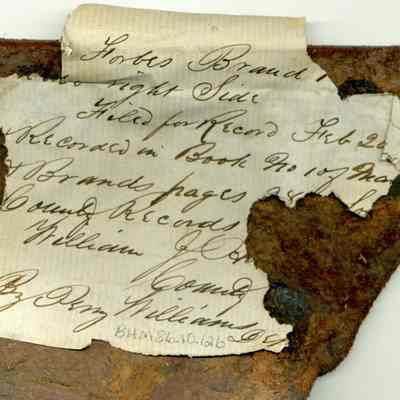 Forbes Brand
to right Side
Filed for Record Feb 20
Recorded in Book No 1 of Ma
& Brands pages 28
County Records
William
County
By Perry Williams
BHM 86.10.12b